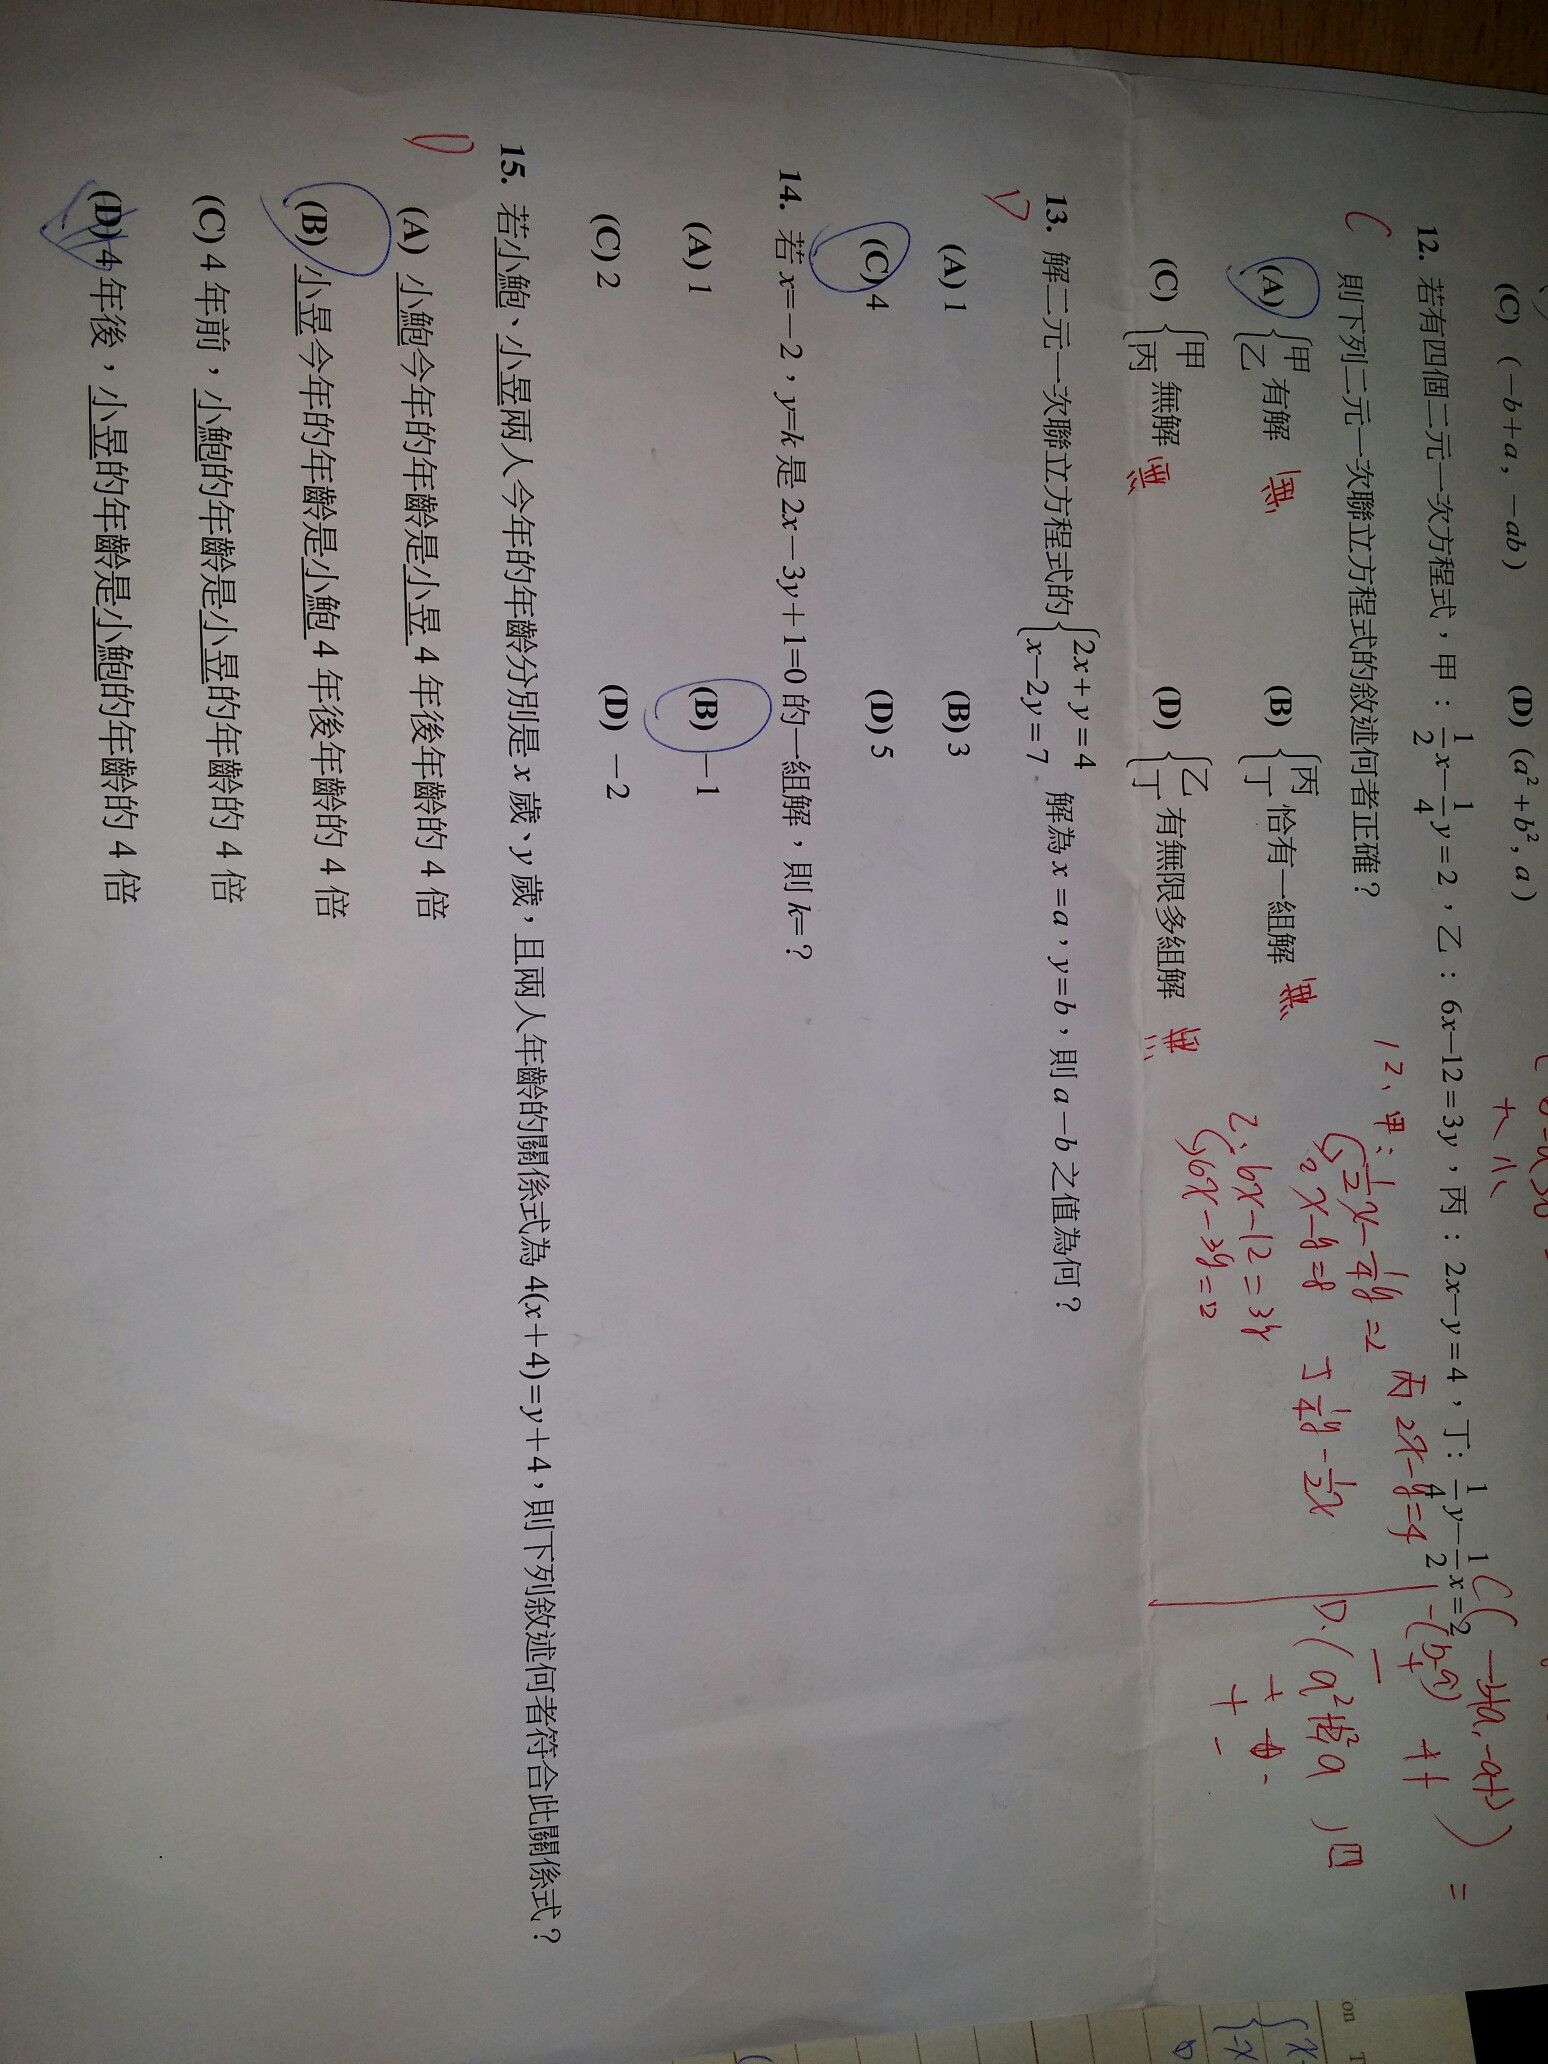 (C) (－b＋a, －ab) (D) (a²＋b², a)
12. 若有四個二元一次方程式，甲：1/2x－1/4y＝2，乙：6x－12＝3y，丙：2x－y＝4，丁：1/4y－1/2x＝2
則下列二元一次聯立方程式的敘述何者正確？
C
(A) {甲 乙 有解 無 (B) {丙 丁 恰有一組解 無
(C) {甲 丙 無解 無 (D) {乙 丁 有無限多組解 無
12、甲：1/2x－1/4y＝2
2x－y＝8
乙：6x－12＝3y
6x－3y＝12
丙 2x－y＝4
丁 1/4y－1/2x
D.(a²+b², a) 四
13. 解二元一次聯立方程式的 {2x＋y＝4 x－2y＝7 解為 x＝a，y＝b，則 a－b 之值為何？
D
(A) 1 (B) 3
(C) 4 (D) 5
14. 若 x＝－2，y＝k 是 2x－3y＋1＝0 的一組解，則 k＝？
(A) 1 (B) －1
(C) 2 (D) －2
15. 若小鮑、小昱兩人今年的年齡分別是 x 歲、y 歲，且兩人年齡的關係式為 4(x＋4)＝y＋4，則下列敘述何者符合此關係式？
D
(A) 小鮑今年的年齡是小昱 4 年後年齡的 4 倍
(B) 小昱今年的年齡是小鮑 4 年後年齡的 4 倍
(C) 4 年前，小鮑的年齡是小昱的年齡的 4 倍
(D) 4 年後，小昱的年齡是小鮑的年齡的 4 倍